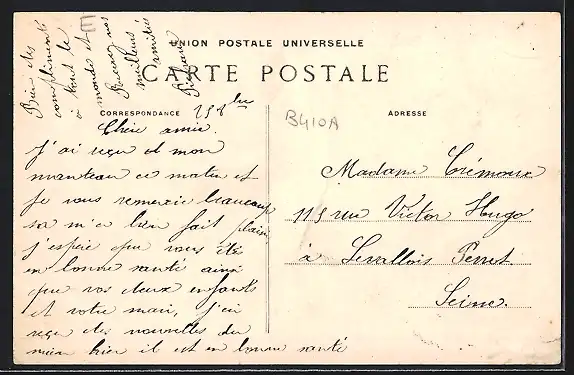 Bien des
compliments
à tout le
monde et
Recevez nos
meilleurs
amitiés
UNION POSTALE UNIVERSELLE
CARTE POSTALE
CORRESPONDANCE
ADRESSE
B410A
Chère amie.
J'ai reçu et mon
manteau ce matin et
Je vous remercie beaucoup
sa m'a bien fait plaisir
j'espère que vous êtes
en bonne santé ainsi
que vos deux enfants
et votre mari, j'ai
reçu des nouvelles du
mien hier il est en bonne santé
Madame Trémoux
115 rue Victor Hugo
à Levallois Perret
Seine.